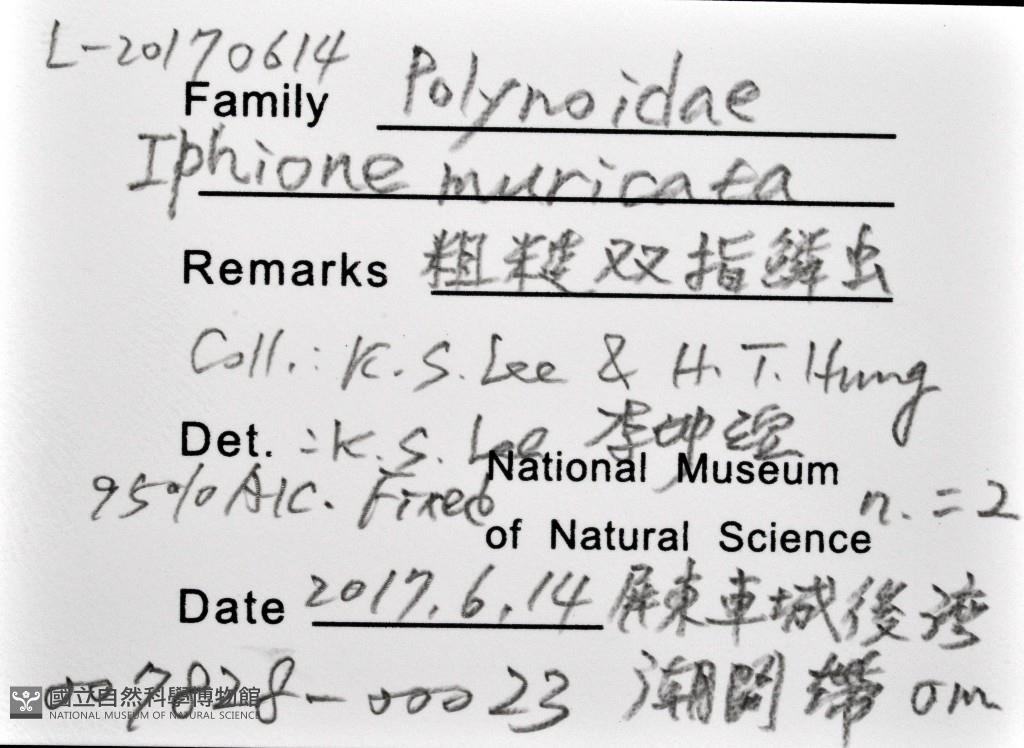 L-20170614
Family Polynoidae
Iphione muricata
Remarks 粗糙双指鳞虫
Coll.: K. S. Lee & H. T. Hung
Det. : K. S. Lee 李坤瑄
National Museum
95% Alc. Fixed n. = 2
of Natural Science
Date 2017.6.14 屏東車城後湾
007828-00023 潮間帶 0m
國立自然科學博物館
NATIONAL MUSEUM OF NATURAL SCIENCE